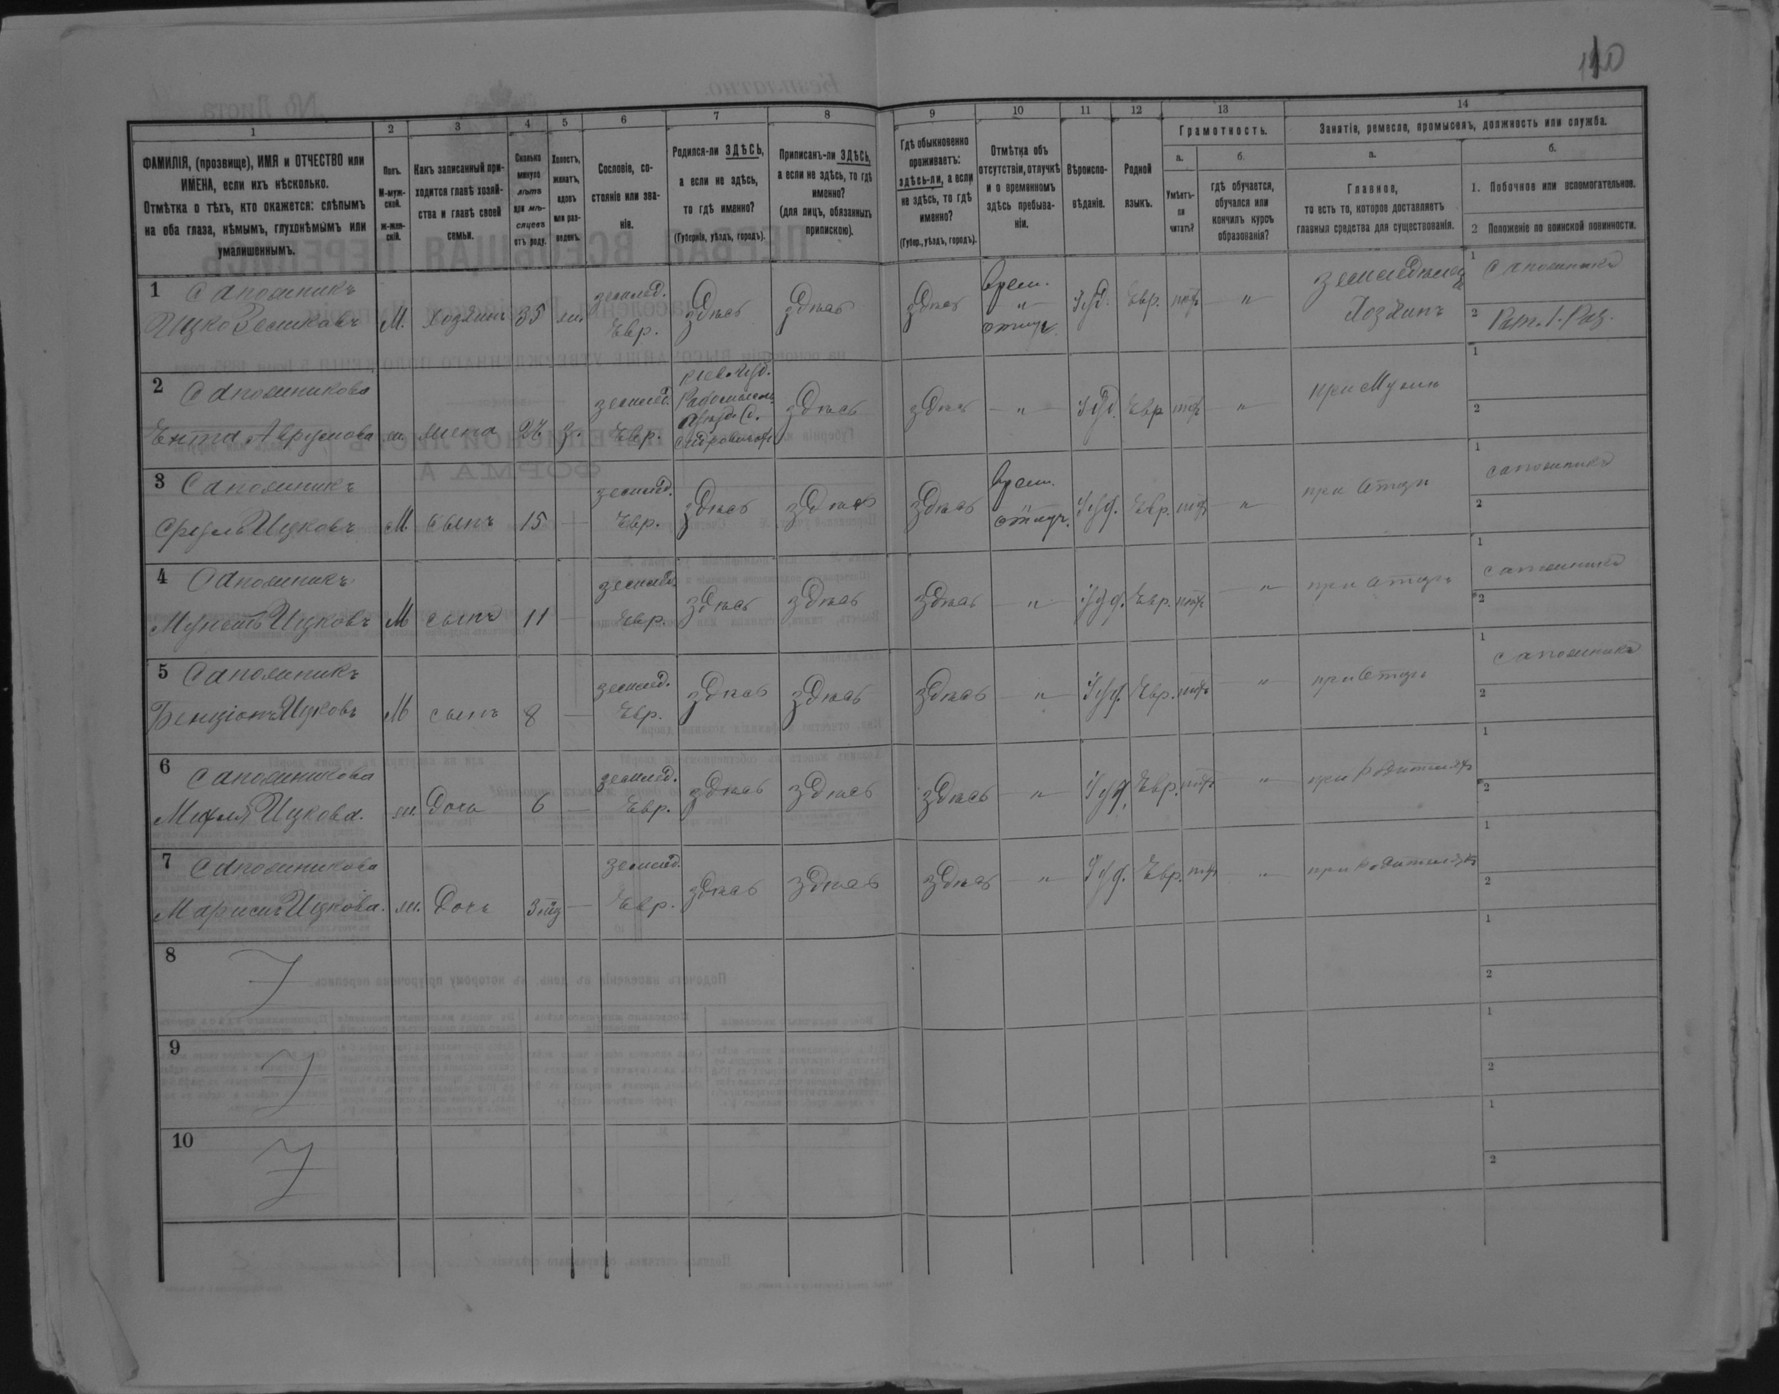 110
1
2
3
4
5
6
7
8
9
10
11
12
13
14
ФАМИЛІЯ, (прозвище), ИМЯ и ОТЧЕСТВО или
ИМЕНА, если ихъ нѣсколько.
Отмѣтка о тѣхъ, кто окажется: слѣпымъ
на оба глаза, нѣмымъ, глухонѣмымъ или
умалишеннымъ.
Полъ.
М-муж-
ской.
Ж-жен-
скій.
Какъ записанный при-
ходится главѣ хозяй-
ства и главѣ своей
семьи.
Сколько
минуло
лѣтъ
или мѣ-
сяцевъ
отъ роду.
Холостъ,
женатъ,
вдовъ
или раз-
веденъ.
Сословіе, со-
стояніе или зва-
ніе.
Родился-ли ЗДѢСЬ,
а если не здѣсь,
то гдѣ именно?
(Губернія, уѣздъ, городъ).
Приписанъ-ли ЗДѢСЬ,
а если не здѣсь, то гдѣ
именно?
(для лицъ, обязанныхъ
припискою).
Гдѣ обыкновенно
проживаетъ:
здѣсь-ли, а если
не здѣсь, то гдѣ
именно?
(Губер., уѣздъ, городъ).
Отмѣтка объ
отсутствіи, отлучкѣ
и о временномъ
здѣсь пребыва-
ніи.
Вѣроиспо-
вѣданіе.
Родной
языкъ.
Грамотность.
а.
Умѣетъ-
ли
читать?
б.
гдѣ обучается,
обучался или
кончилъ курсъ
образованія?
Занятіе, ремесло, промыселъ, должность или служба.
а.
Главное,
то есть то, которое доставляетъ
главныя средства для существованія.
б.
1. Побочное или вспомогательное.
2 Положеніе по воинской повинности.
1
Сапожникъ
Ицко
М.
Хозяинъ
35
жен.
землед.
Евр.
здѣсь
здѣсь
здѣсь
врем.
"
отлуч.
Іуд.
Евр.
"
Земледѣлец
Хозяинъ
1
Сапожникъ
2
Рат. 1. Раз.
2
Сапожникова
Ента Аврумова
ж.
жена
З.
землед.
Евр.
здѣсь
здѣсь
"
Іуд.
Евр
"
при Мужѣ
1
2
3
Сапожникъ
Сруль Ицковъ
М
сынъ
15
—
землед.
Евр.
здѣсь
здѣсь
здѣсь
Врем.
отлуч.
Іуд.
Евр.
"
при Отцѣ
1
сапожникъ
2
4
Сапожникъ
Ицковъ
М
сынъ
11
—
землед.
Евр.
здѣсь
здѣсь
здѣсь
"
Іуд.
Евр.
"
при отцѣ
1
сапожникъ
2
5
Сапожникъ
Бенціонъ Ицковъ
М
сынъ
8
—
землед.
Евр.
здѣсь
здѣсь
здѣсь
"
Іуд.
Евр.
"
при Отцѣ
1
сапожникъ
2
6
Сапожникова
Ицкова.
ж.
Дочь
6
—
землед.
Евр.
здѣсь
здѣсь
здѣсь
"
Іуд.
Евр.
"
при родителяхъ
1
2
7
Сапожникова
Ицкова.
ж.
Дочь
—
землед.
Евр.
здѣсь
здѣсь
здѣсь
"
Іуд.
Евр.
"
при родителяхъ
1
2
8
1
2
9
1
2
10
1
2